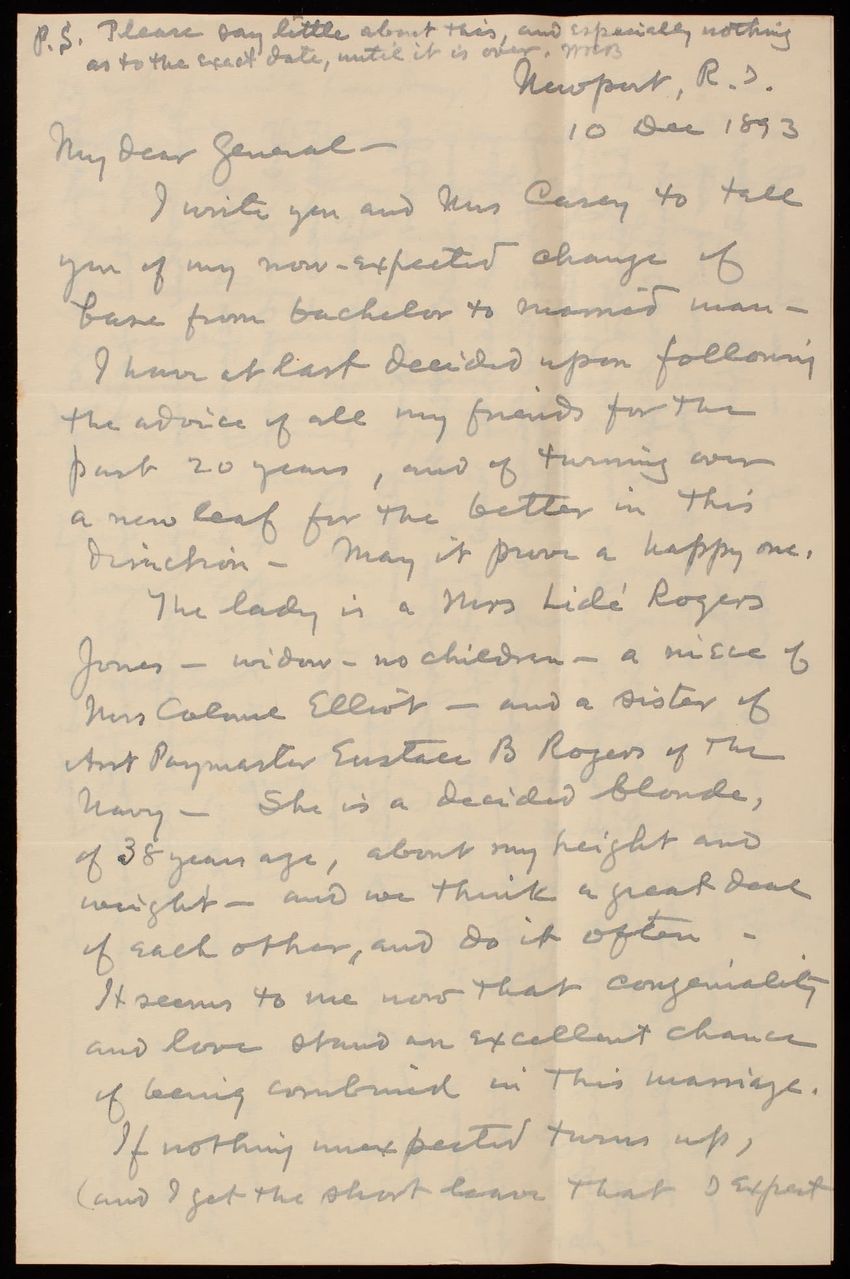 P.S. Please say little about this, and especially nothing
as to the exact date, until it is over. WRB
Newport, R.I.
10 Dec 1893
My dear General—
I write you and Mrs Casey to tell
you of my now-expected change of
base from bachelor to married man—
I have at last decided upon following
the advice of all my friends for the
past 20 years, and of turning over
a new leaf for the better in this
direction— May it prove a happy one.
The lady is a Mrs Lidé Rogers
Jones— widow— no children— a niece of
Mrs Colonel Elliot— and a sister of
Asst Paymaster Eustace B Rogers of the
Navy— She is a decided blonde,
of 38 years age, about my height and
weight— and we think a great deal
of each other, and do it often—
It seems to me now that congeniality
and love stand an excellent chance
of being combined in this marriage.
If nothing unexpected turns up,
(and I get the short leave that I expect